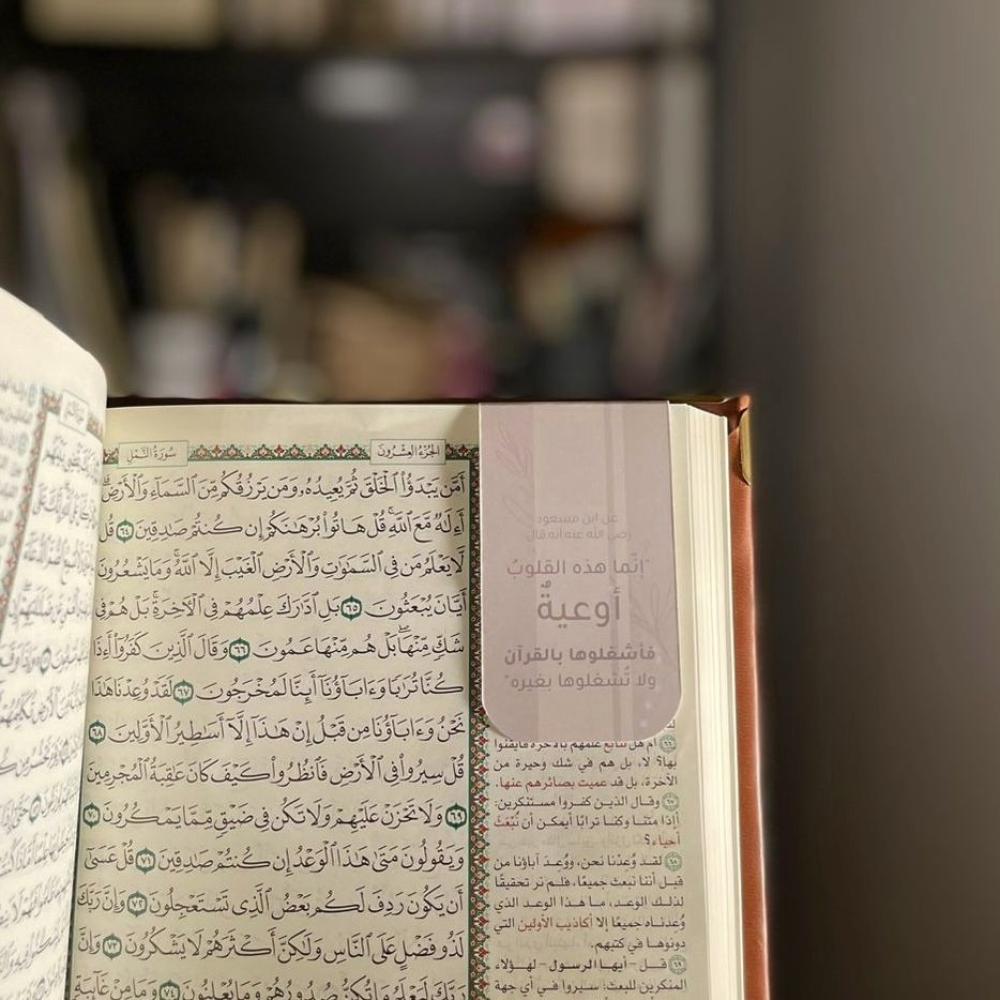 الجزء العشرون
سورة النمل
أَمَّن يَبْدَؤُا۟ ٱلْخَلْقَ ثُمَّ يُعِيدُهُۥ وَمَن يَرْزُقُكُم مِّنَ ٱلسَّمَآءِ وَٱلْأَرْضِ ۗ
أَءِلَٰهٌ مَّعَ ٱللَّهِ ۚ قُلْ هَاتُوا۟ بُرْهَٰنَكُمْ إِن كُنتُمْ صَٰدِقِينَ ٦٤ قُل
لَّا يَعْلَمُ مَن فِى ٱلسَّمَٰوَٰتِ وَٱلْأَرْضِ ٱلْغَيْبَ إِلَّا ٱللَّهُ ۚ وَمَا يَشْعُرُونَ
أَيَّانَ يُبْعَثُونَ ٦٥ بَلِ ٱدَّٰرَكَ عِلْمُهُمْ فِى ٱلْءَاخِرَةِ ۚ بَلْ هُمْ فِى
شَكٍّ مِّنْهَا ۖ بَلْ هُم مِّنْهَا عَمُونَ ٦٦ وَقَالَ ٱلَّذِينَ كَفَرُوٓا۟ أَءِذَا
كُنَّا تُرَٰبًا وَءَابَآؤُنَآ أَئِنَّا لَمُخْرَجُونَ ٦٧ لَقَدْ وُعِدْنَا هَٰذَا
نَحْنُ وَءَابَآؤُنَا مِن قَبْلُ إِنْ هَٰذَآ إِلَّآ أَسَٰطِيرُ ٱلْأَوَّلِينَ ٦٨
قُلْ سِيرُوا۟ فِى ٱلْأَرْضِ فَٱنظُرُوا۟ كَيْفَ كَانَ عَٰقِبَةُ ٱلْمُجْرِمِينَ
٦٩ وَلَا تَحْزَنْ عَلَيْهِمْ وَلَا تَكُن فِى ضَيْقٍ مِّمَّا يَمْكُرُونَ ٧٠
وَيَقُولُونَ مَتَىٰ هَٰذَا ٱلْوَعْدُ إِن كُنتُمْ صَٰدِقِينَ ٧١ قُلْ عَسَىٰٓ
أَن يَكُونَ رَدِفَ لَكُم بَعْضُ ٱلَّذِى تَسْتَعْجِلُونَ ٧٢ وَإِنَّ رَبَّكَ
لَذُو فَضْلٍ عَلَى ٱلنَّاسِ وَلَٰكِنَّ أَكْثَرَهُمْ لَا يَشْكُرُونَ ٧٣ وَإِنَّ
رَبَّكَ لَيَعْلَمُ مَا تُكِنُّ صُدُورُهُمْ وَمَا يُعْلِنُونَ ٧٤ وَمَا مِنْ غَآئِبَةٍ
عن ابن مسعود
رضي الله عنه أنه قال
"إنّما هذه القلوبُ
أوعيةٌ
فأشغلوها بالقرآن
ولا تُشغلوها بغيره"
٦٦ أم هل تتابع علمهم بالآخرة فأيقنوا
بها؟ لا، بل هم في شك وحيرة من
الآخرة، بل قد عميت بصائرهم عنها.
٦٧ وقال الذين كفروا مستنكرين:
أإذا متنا وكنا ترابًا أيمكن أن نُبْعَثَ
أحياء؟
٦٨ لقد وُعِدْنا نحن، ووُعِدَ آباؤنا من
قبل أننا نبعث جميعًا، فلم نر تحقيقًا
لذلك الوعد، ما هذا الوعد الذي
وُعِدناه جميعًا إلا أكاذيب الأولين التي
دونوها في كتبهم.
٦٩ قل - أيها الرسول - لهؤلاء
المنكرين للبعث: سيروا في أي جهة